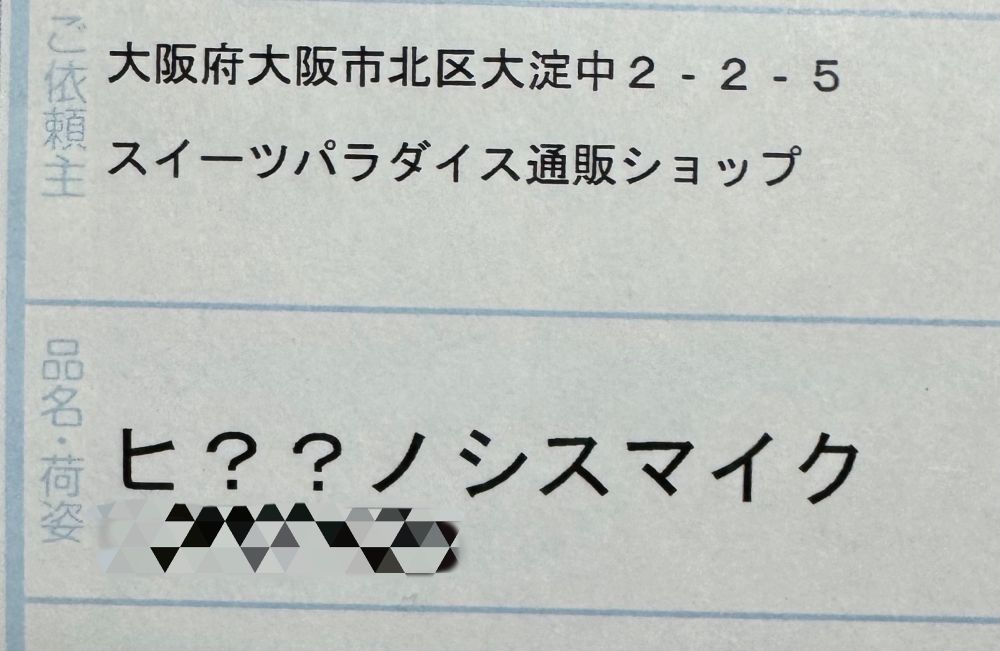 ご依頼主
大阪府大阪市北区大淀中2-2-5
スイーツパラダイス通販ショップ
品名・荷姿
ヒ??ノシスマイク